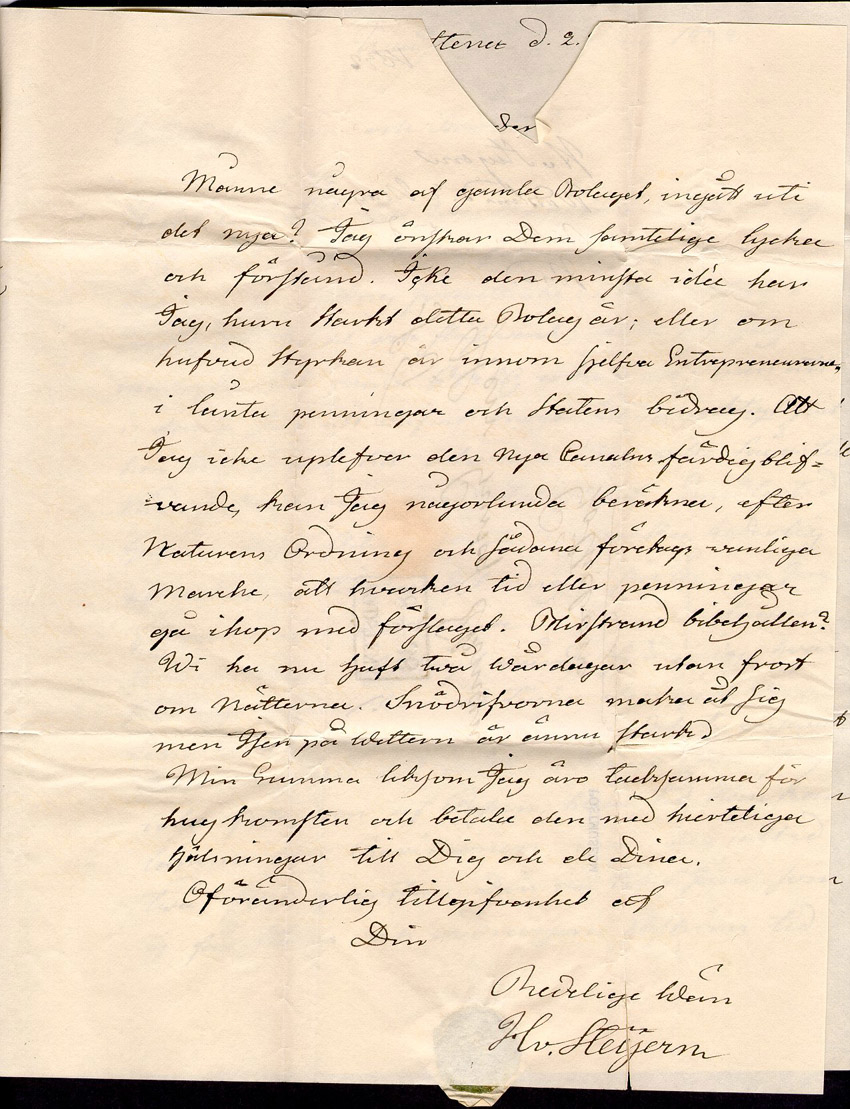 d. 2.
Der
Månne några af gamla Bolaget, ingått uti
det nya? Jag önskar Dem samtelige lycka
och förstånd. Icke den minsta idée har
Jag, huru starkt detta Bolag är; eller om
hufvud styrkan är innom sjelfva Entrepreneurerne,
i lånta penningar och Statens bidrag. Att
Jag icke uplefver den nya Canalns färdigblif=
vande, kan Jag någorlunda beräkna, efter
Naturens Ordning och sådana företags vanliga
Marche, att hvarken tid eller penningar
gå ihop med förslaget. Mirstrand bibehållen?
Wi ha nu haft två Wårdagar utan frost
om Nätterna. Snödrifvorna maka åt sig
men Isen på Wettern är ännu stark.
Min Gumma liksom Jag äro tacksamma för
hugkomsten och betala den med hierteliga
hälsningar till Dig och de Dina.
Oföränderlig tillgifvenhet af
Din
Redelige Wän
Hv. Heijerm